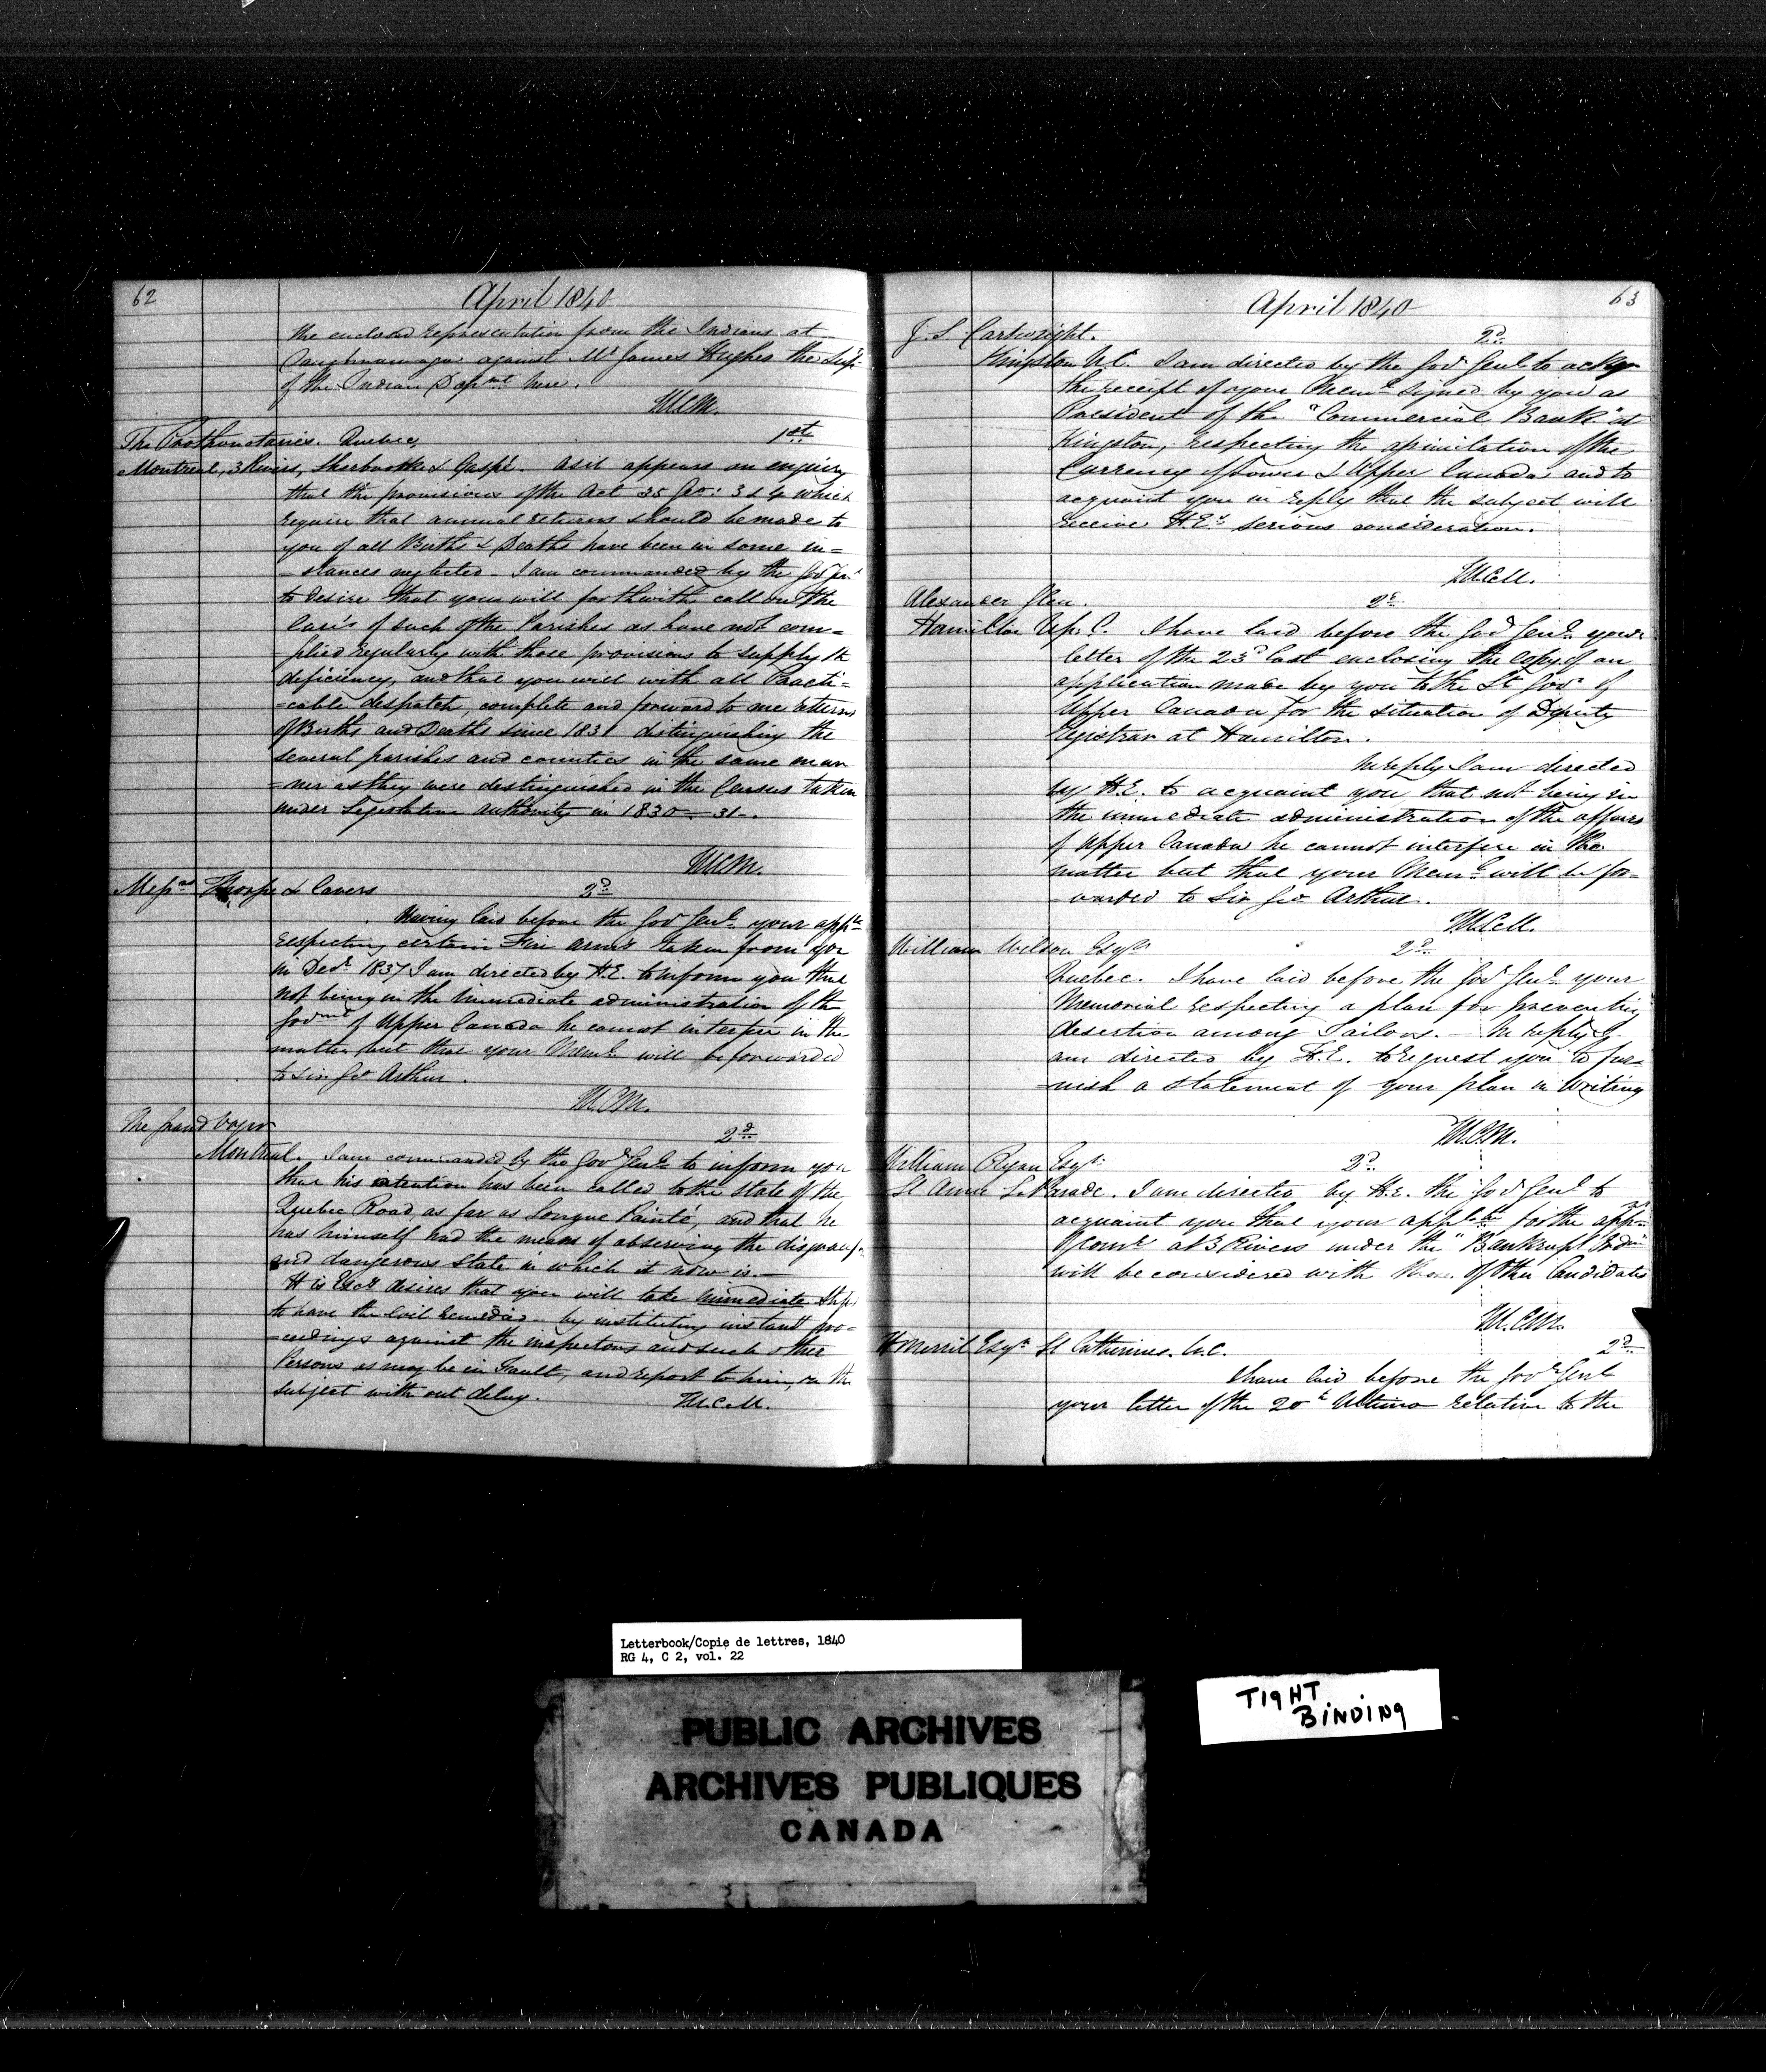 62
April 1840
the enclosed representation from the Indians at
Caughnawaga against Mr James Hughes the Supt
of the Indian Depmt here.
TWCM.
The Prothonotaries. Quebec, 1st
Montreal, 3 Rivers, Sherbrooke & Gaspé. As it appears on enquiry
that the provisions of the Act 35 Geo: 3 which
require that annual returns should be made to
you of all Births & Deaths have been in some in=
=stances neglected – I am commanded by the Govr Genl
to desire that you will forthwith call on the
Curés of such of the Parishes as have not com=
=plied regularly with those provisions to supply the
deficiency, and that you will with all Practi=
=cable despatch, complete and forward to me returns
of Births and Deaths since 1831 distinguishing the
several parishes and counties in the same man
=ner as they were distinguished in the Census taken
under Legislative authority in 1830–31–.
TWCM.
Messrs Thorpe & Cavers 2d
Having laid before the Govr Genl your appln
respecting certain Fire arms taken from you
in Decr 1837 I am directed by H.E. to inform you that
not being in the immediate administration of the
Govmt of Upper Canada he cannot interfere in the
matter but that your Meml will be forwarded
to Sir Geo Arthur.
TWCM.
The Grand Voyer 2d
Montreal. I am commanded by the Govr Genl to inform you
that his attention has been called to the state of the
Quebec Road, as far as Longue Pointe, and that he
has himself had the means of observing the disgraceful
and dangerous State in which it now is.–
His Excy desires that you will take immediate steps
to have the evil remedied by instituting instant pro=
=ceedings against the inspectors and such other
Persons as may be in Fault, and report to him, on the
subject with out delay.
TWCM.
63
April 1840
J. S. Cartwright. 2d
Kingston U.C. I am directed by the Govr Genl to ackge
the receipt of your Meml signed by you as
President of the "Commercial Bank" at
Kingston, respecting the assimilation of the
Currency of Lower & Upper Canada and to
acquaint you in reply that the subject will
receive H.E's serious consideration.
TWCM.
Alexander Glen. 2d
Hamilton Up. C. I have laid before the Govr Genl your
letter of the 23d last enclosing the Copy of an
application made by you to the Lt Govr of
Upper Canada for the situation of Deputy
Registrar at Hamilton.
In reply I am directed
by H.E. to acquaint you that not being in
the immediate administration of the affairs
of Upper Canada he cannot interfere in the
matter but that your Meml will be for=
=warded to Sir Geo Arthur.
TWCM.
William Wilson Esqr 2d
Quebec. I have laid before the Govr Genl your
Memorial respecting a plan for preventing
desertion among Sailors. – In reply I
am directed by H.E. to request you to fur=
=nish a statement of your plan in Writing
TWCM.
William Ryan Esqr 2d
St Anne La Parade. I am directed by H.E. the Govr Genl to
acquaint you that your appln for the appt
of Comr at 3 Rivers under the "Bankrupt Ordce"
will be considered with those of other Candidates
TWCM.
H Merrit Esqr St Catherines. U.C. 2d
I have laid before the Govr Genl
your letter of the 20th Ultimo relative to the
Letterbook/Copie de lettres, 1840
RG 4, C 2, vol. 22
PUBLIC ARCHIVES
ARCHIVES PUBLIQUES
CANADA
TIGHT
BINDING